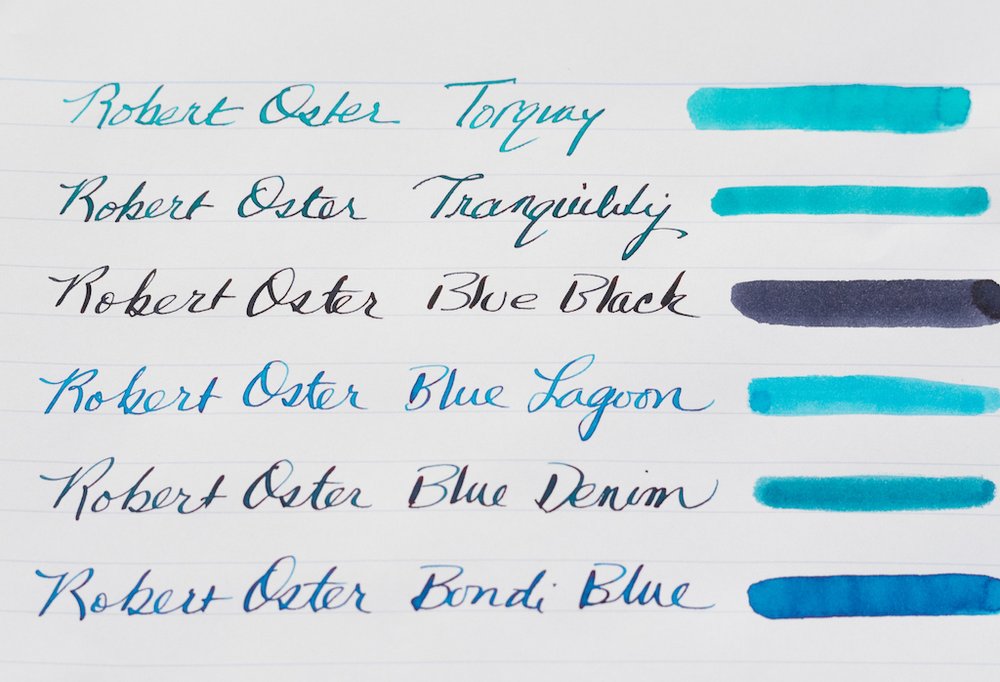 Robert Oster Torquay
Robert Oster Tranquility
Robert Oster Blue Black
Robert Oster Blue Lagoon
Robert Oster Blue Denim
Robert Oster Bondi Blue